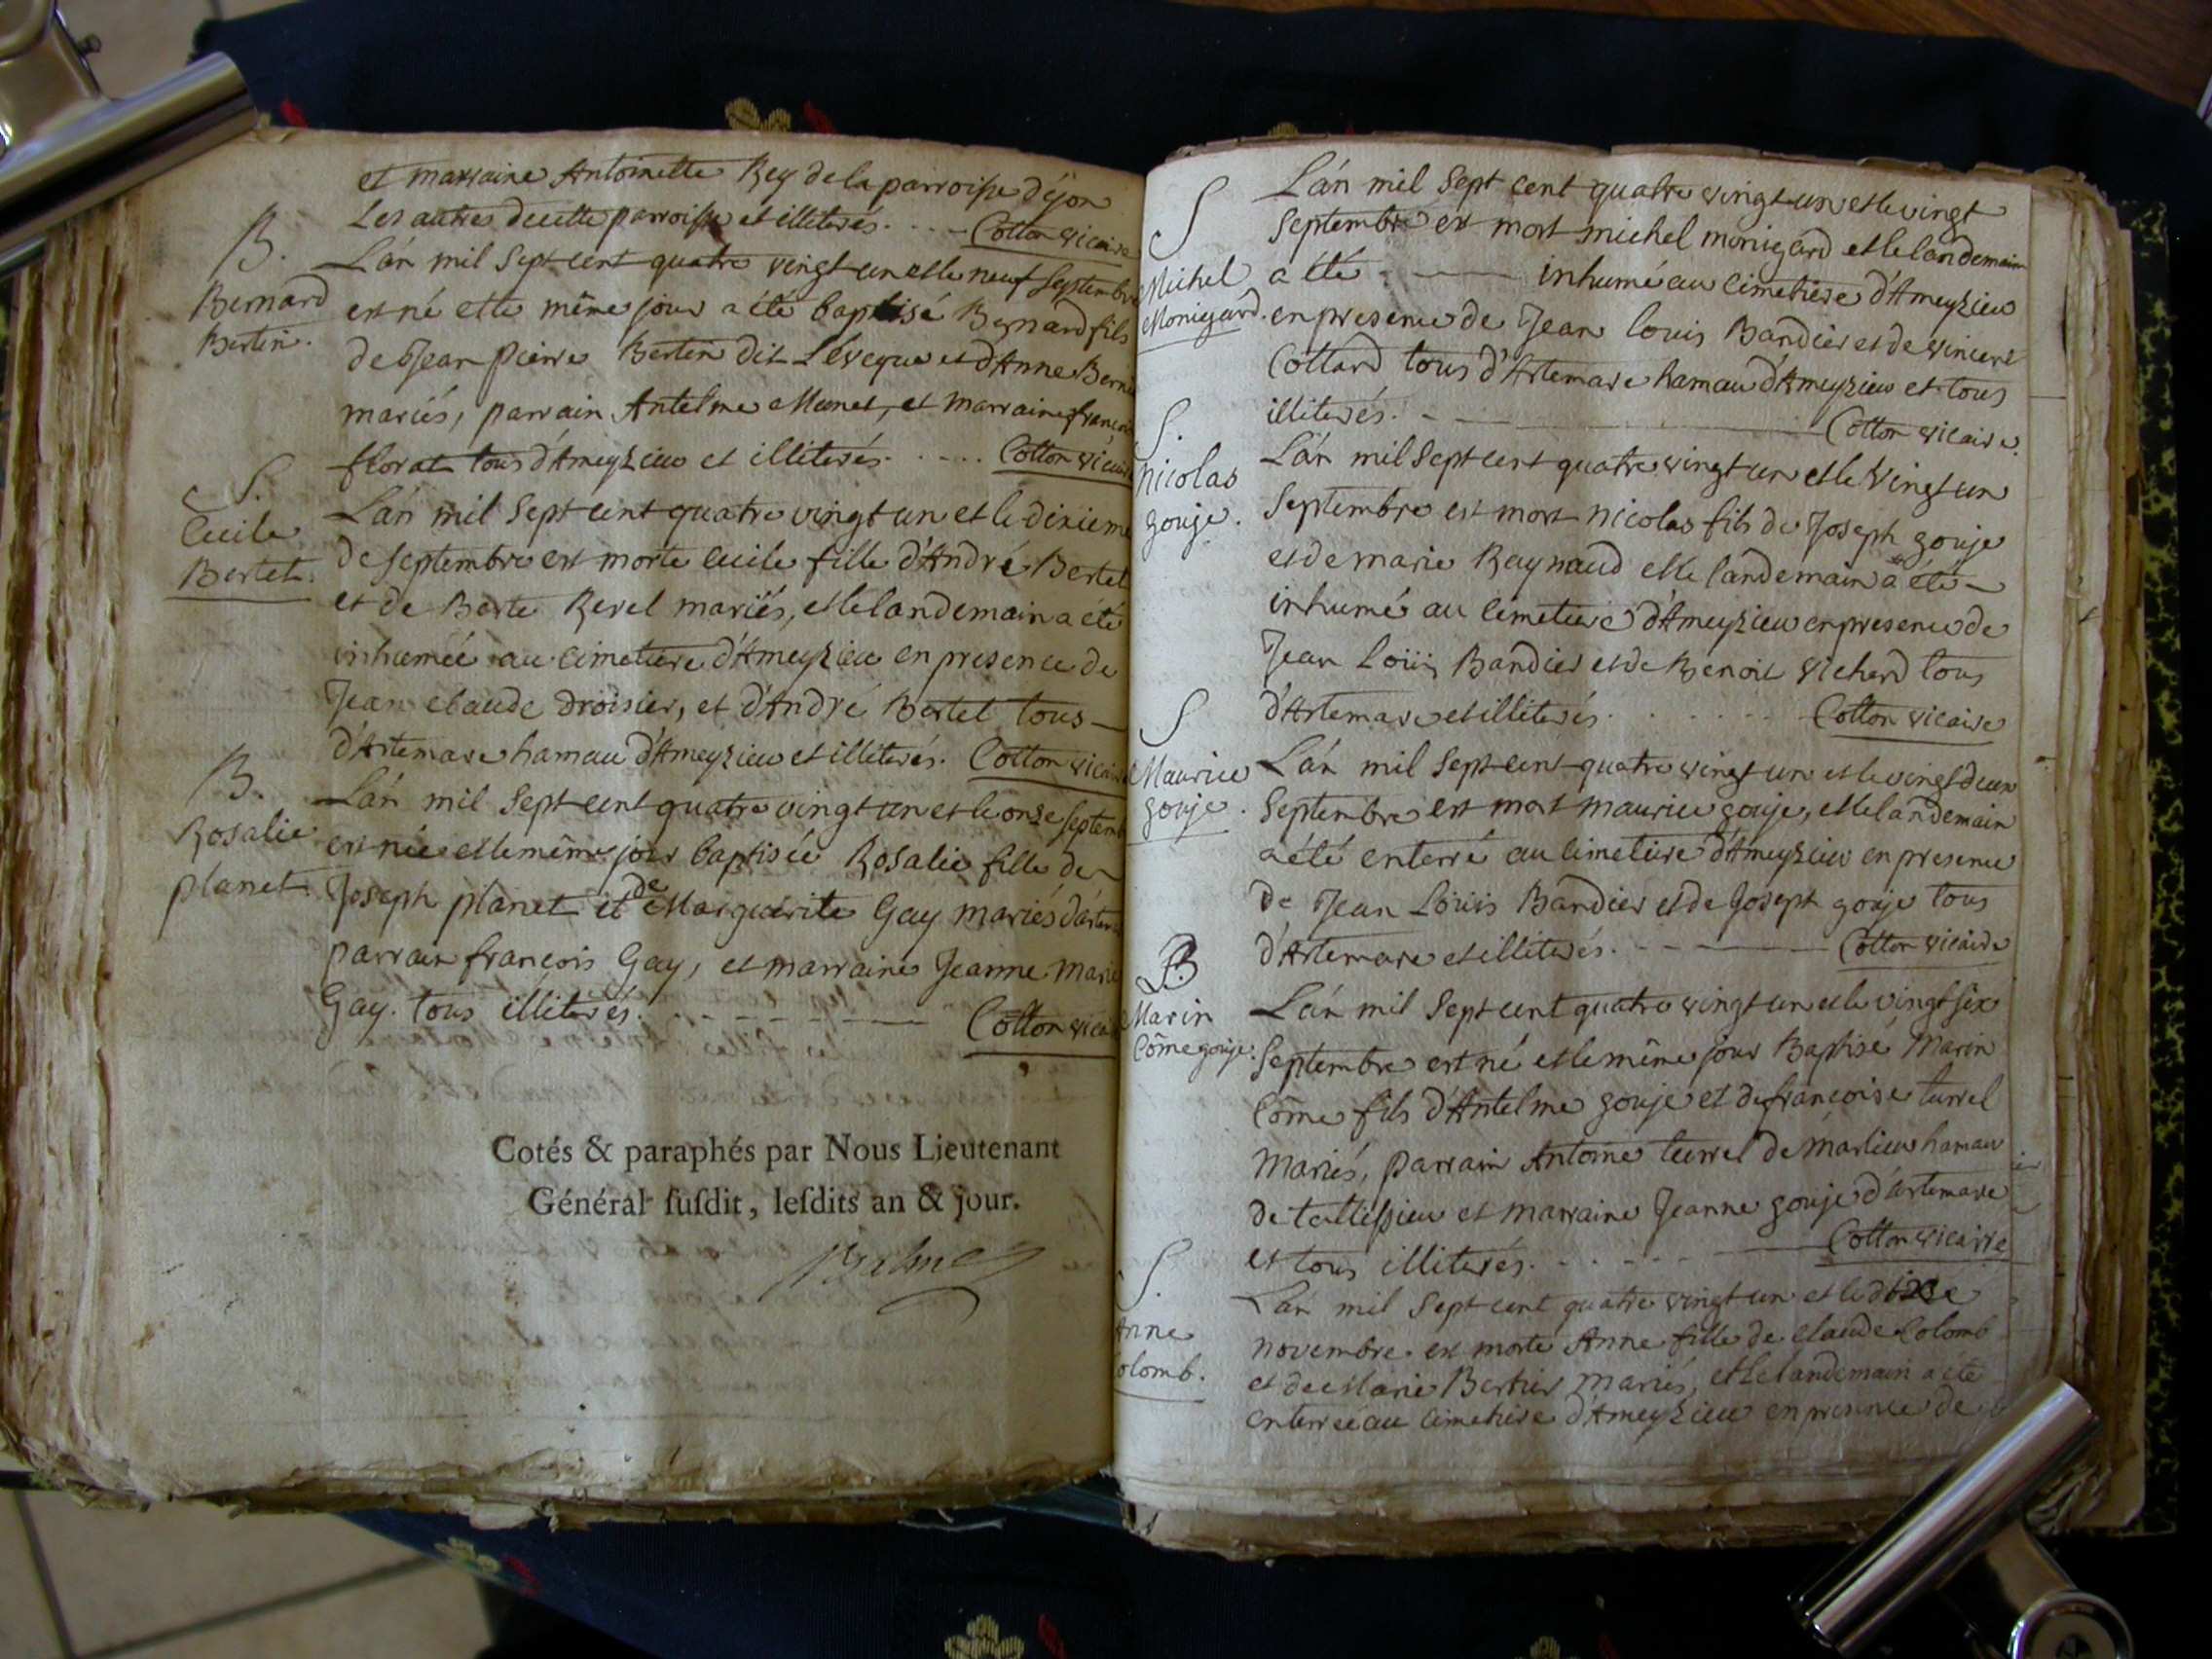 et marraine Antoinette Rey de la parroisse d'éjon
Les autres de cette parroisse et illiterés. Cotton vicaire
B.
Bernard
Bertin.
L'án mil sept cent quatre vingt un et le neuf septembre
est né et le même jour a été baptisé Bernard fils
de Jean pierre Bertin dit L'évêque et d'Anne
mariés, parrain Antelme Munet, et marraine
florat tous d'Ameyzieu et illiterés. Cotton
S.
Cecile
Bertet.
L'án mil sept cent quatre vingt un et le dixieme
de septembre est morte cecile fille d'André Bertet
et de Berte Revel mariés, et le landemain a été
inhumée au cimetiere d'Ameyzieu en presence de
Jean claude droisier, et d'André Bertet tous
d'Artemare hamau d'Ameyzieu et illiterés. Cotton
B.
Rosalie
planet.
L'án mil sept cent quatre vingt un et le onze
est née et le même jour baptisée Rosalie fille de
Joseph planet et de Marguérite Gay mariés
parrain françois Gay, et marraine Jeanne
Gay. tous illiterés. Cotton
Cotés & paraphés par Nous Lieutenant
Général ſuſdit, leſdits an & jour.
S
Michel
Monigard.
L'án mil sept cent quatre vingt un et le vingt
septembre est mort michel monigard et le landemain
a été inhumé au cimetiere d'Ameyzieu
en presence de Jean louis Bandier et de vincent
Cottard tous d'Artemare hamau d'Ameyzieu et tous
illiterés. Cotton vicaire
S.
Nicolas
gouje.
L'án mil sept cent quatre vingt un et le vingt un
septembre est mort nicolas fils de Joseph gouje
et de marie Raynaud et le landemain a été
inhumé au cimetiere d'Ameyzieu en presence de
Jean Loüis Bandier et de Benoit tous
d'Artemare et illiterés. Cotton vicaire
S
Maurice
gouje.
L'án mil sept cent quatre vingt un et le vingt deux
septembre est mort maurice gouje, et le landemain
a été enterré au cimetiere d'Ameyzieu en presence
de Jean Loüis Bandier et de Joseph gouje tous
d'Artemare et illiterés. Cotton vicaire
B
Marin
Côme gouje.
L'án mil sept cent quatre vingt un et le vingt six
septembre est né et le même jour Baptisé Marin
Côme fils d'Antelme gouje et de françoise turrel
mariés, parrain Antoine turrel de marlieu hamau
de tallissieu et marraine Jeanne gouje d'artemare
et tous illiterés. Cotton vicaire
S.
Anne
Colomb.
L'án mil sept cent quatre vingt un et le
novembre est morte Anne fille de claude Colomb
et de Marie Bertier mariés, et le landemain a été
enterrée au cimetiere d'Ameyzieu en presence de